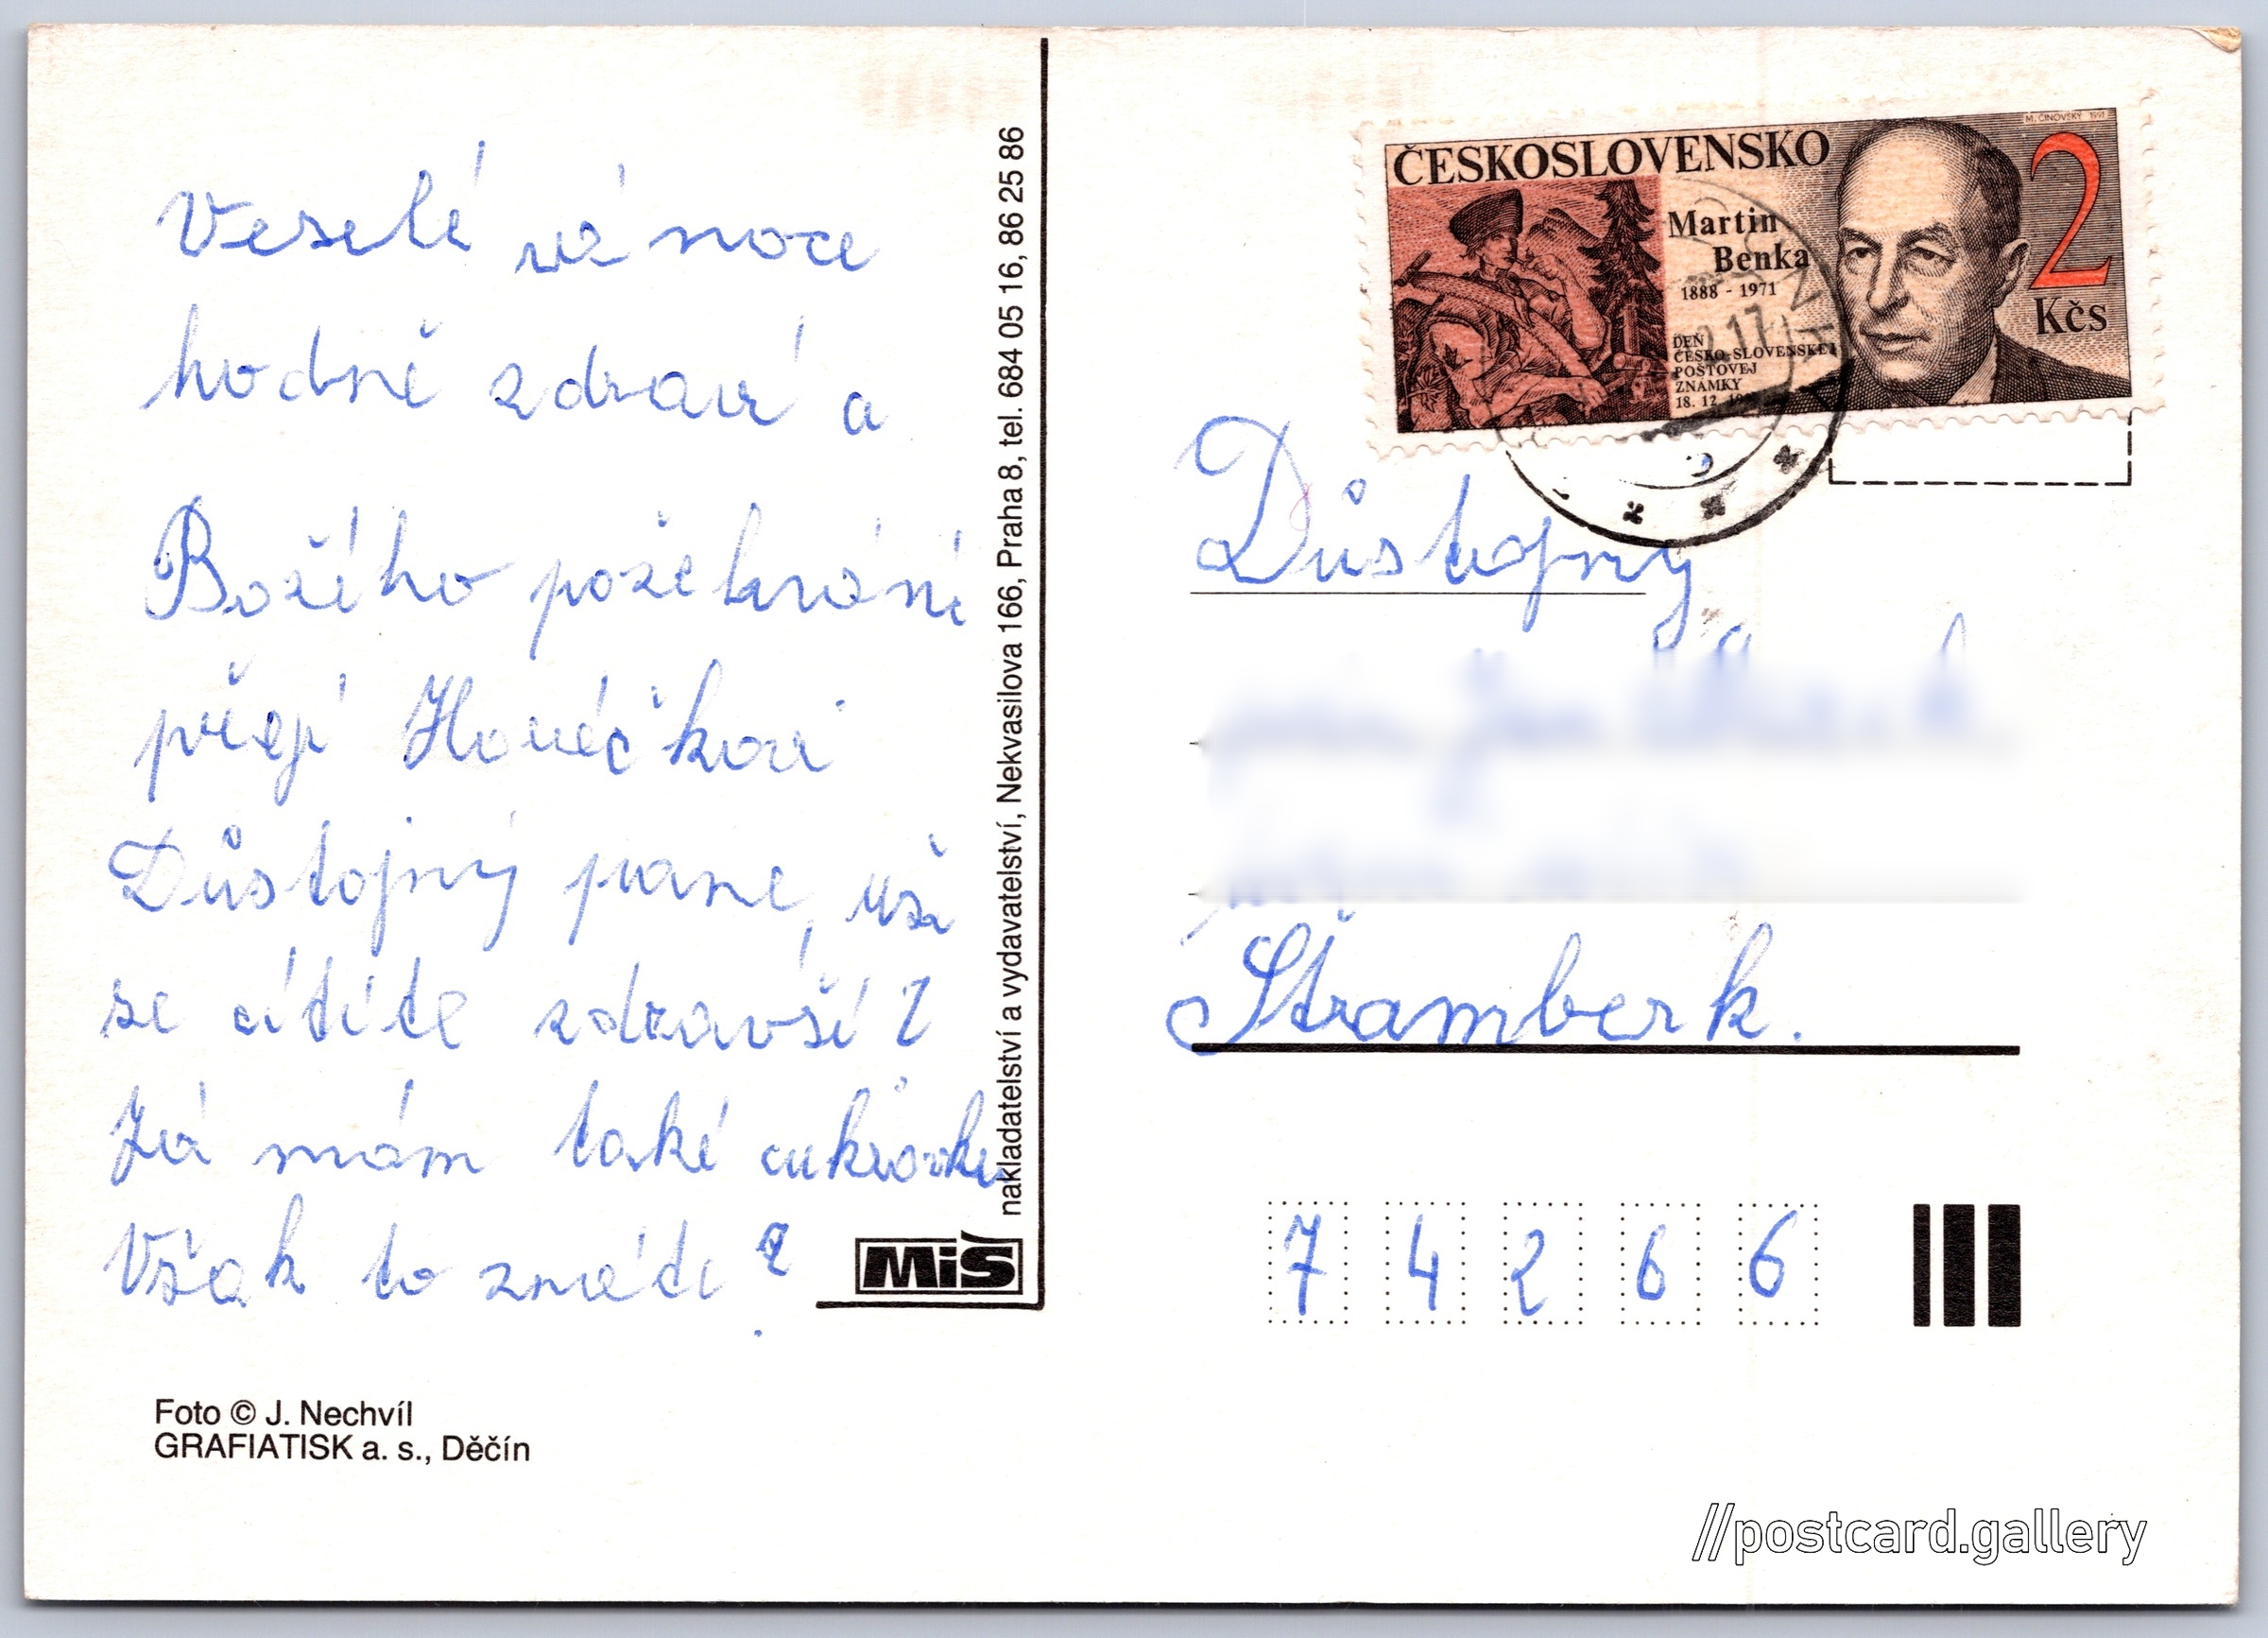 Veselé vánoce
hodně zdraví a
Božího požehnání
přejí
Důstojný pane, už
se cítíte zdravší?
Já mám také cukrovku
Však to znáte?
Foto © J. Nechvíl
GRAFIATISK a. s., Děčín
nakladatelství a vydavatelství, Nekvasilova 166, Praha 8, tel. 684 05 16, 86 25 86
MiŠ
ČESKOSLOVENSKO
Martin
Benka
1888 - 1971
DEŇ
ČESKO-SLOVENSKEJ
POŠTOVEJ
ZNÁMKY
18. 12.
M. ČINOVSKÝ 1991
2
Kčs
Důstojný
Štramberk.
74266
//postcard.gallery